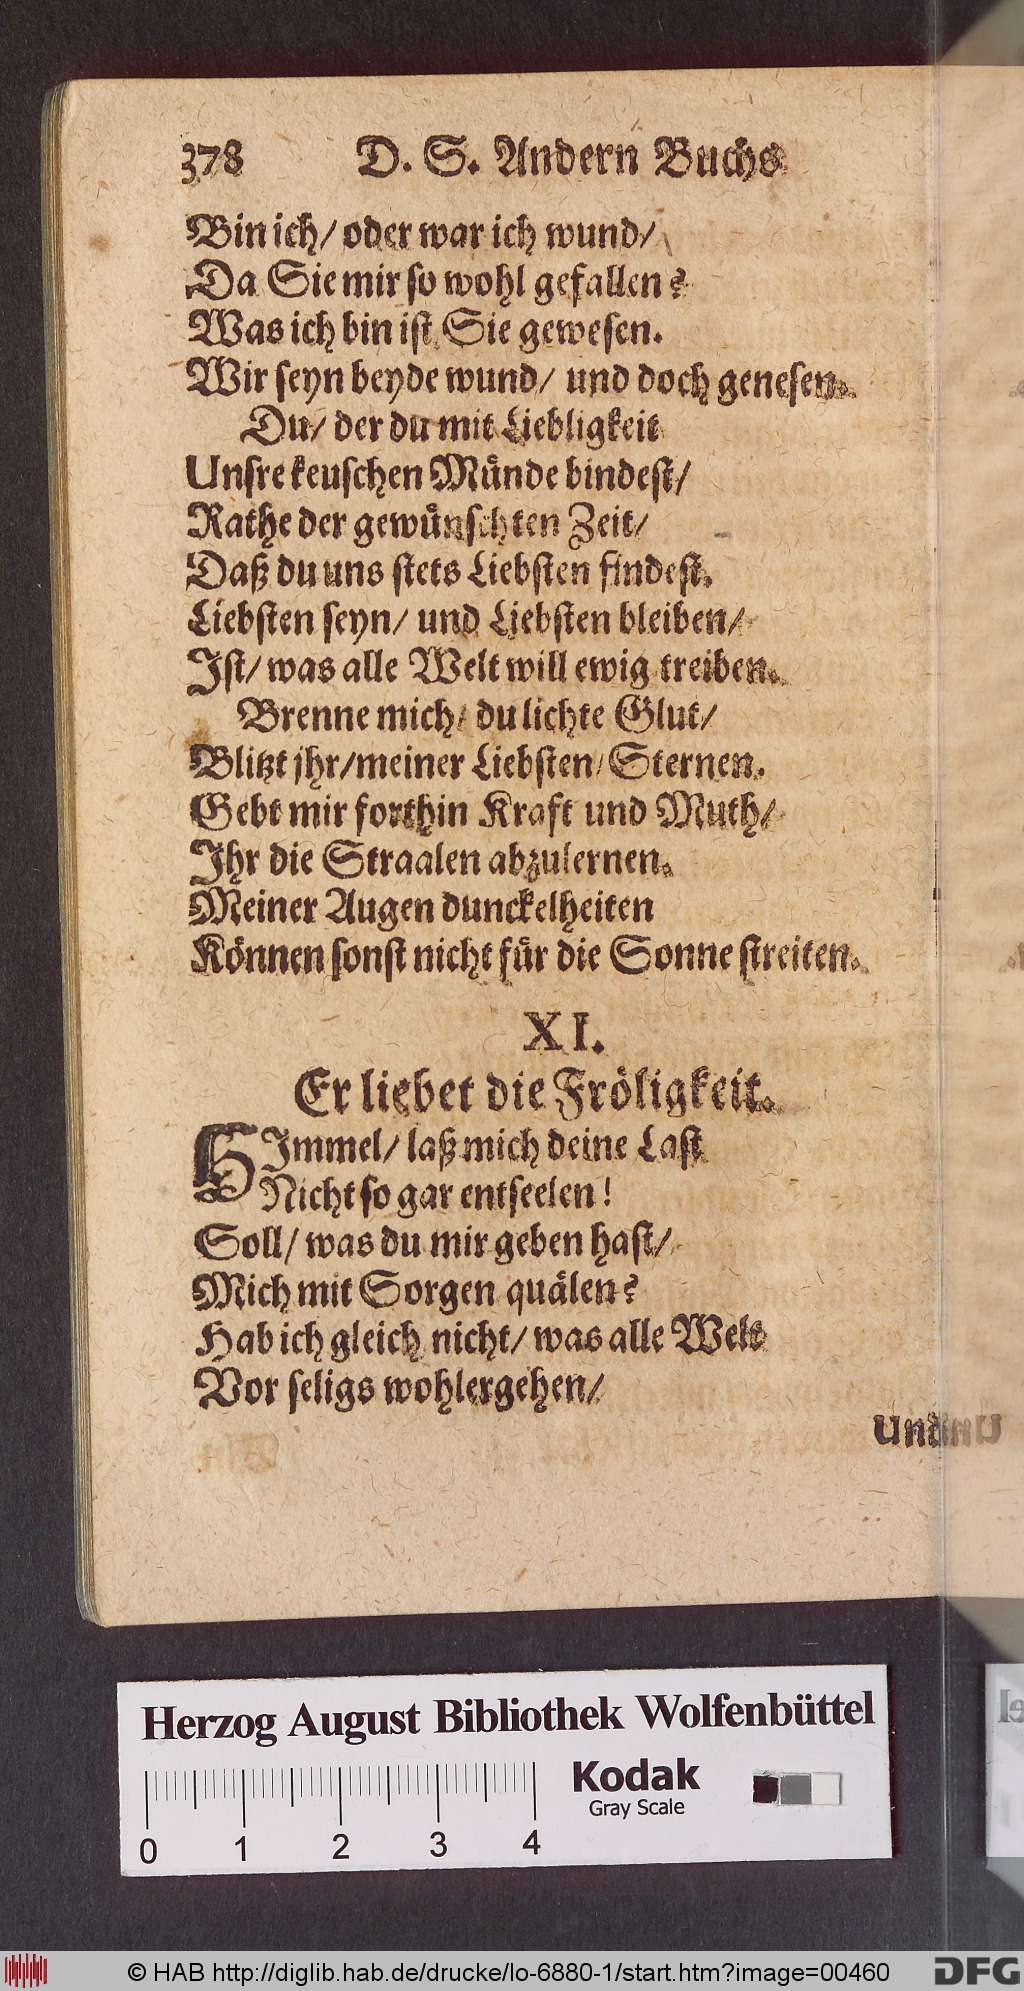 378 D. S. Andern Buchs
Bin ich/ oder war ich wund/
Da Sie mir so wohl gefallen?
Was ich bin ist Sie gewesen.
Wir seyn beyde wund/ und doch genesen.
Du/ der du mit Liebligkeit
Unsre keuschen Münde bindest/
Rathe der gewünschten Zeit/
Daß du uns stets Liebsten findest.
Liebsten seyn/ und Liebsten bleiben/
Ist/ was alle Welt will ewig treiben.
Brenne mich/ du lichte Glut/
Blitzt jhr/ meiner Liebsten/ Sternen.
Gebt mir forthin Kraft und Muth/
Ihr die Straalen abzulernen.
Meiner Augen dunckelheiten
Können sonst nicht für die Sonne streiten.
XI.
Er liebet die Fröligkeit.
HImmel/ laß mich deine Last
Nicht so gar entseelen!
Soll/ was du mir geben hast/
Mich mit Sorgen quälen?
Hab ich gleich nicht/ was alle Welt
Vor seligs wohlergehen/
Und
Herzog August Bibliothek Wolfenbüttel
Kodak
Gray Scale
0 1 2 3 4
© HAB http://diglib.hab.de/drucke/lo-6880-1/start.htm?image=00460
DFG